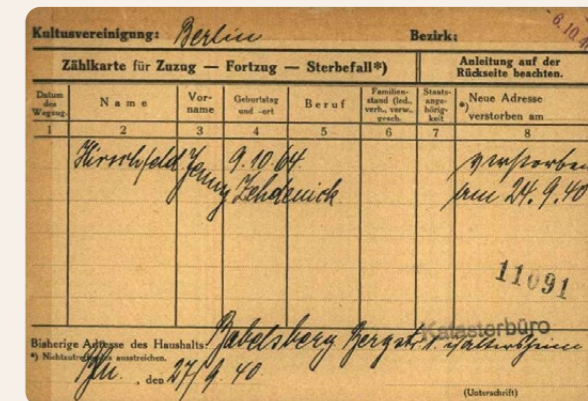 Kultusvereinigung: Berlin Bezirk:
6.10.4
Zählkarte für Zuzug — Fortzug — Sterbefall*)
Anleitung auf der
Rückseite beachten.
Datum des Wegzug. Name Vor-name Geburtstag und -ort Beruf Familien-stand (led., verh., verw., gesch. Staats-ange-hörig-keit *) Neue Adresse verstorben am
1 2 3 4 5 6 7 8
Hirschfeld Jenny 9.10.64 verstorben
Zehdenick am 24.9.40
11091
Katasterbüro
Bisherige Adresse des Haushalts: Babelsberg Bergstr. 1. Altersheim
*) Nichtzutreffendes ausstreichen.
Bln. , den 27/9.40
(Unterschrift)